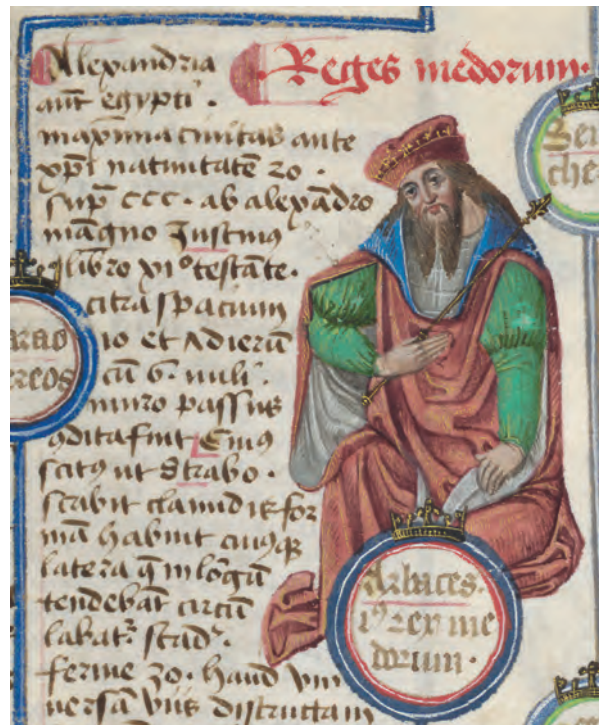 Alexandria
aut̄ egypti .
maxima ciuitas ante
xp̄i natiuitatē 20 .
sup̄ ccc . ab alexādro
māgno Iustinus
libro xi° testāte .
citra spacium
io et Adierū
cū 6. mili .
muro passus
ꝯdita fuit Eiꝰ
scitꝰ ut Strabo .
scᵃbit clamidis for
mā habuit cuiꝰqꝫ
latera q̄ in lōgū
tendebāt circū
labatʳ stadʳ.
ferme 20 . haud vni
uersā viis distructam
Reges medorum .
Arbaces .
i⁹ rex me
dorum .
arao
reos
che